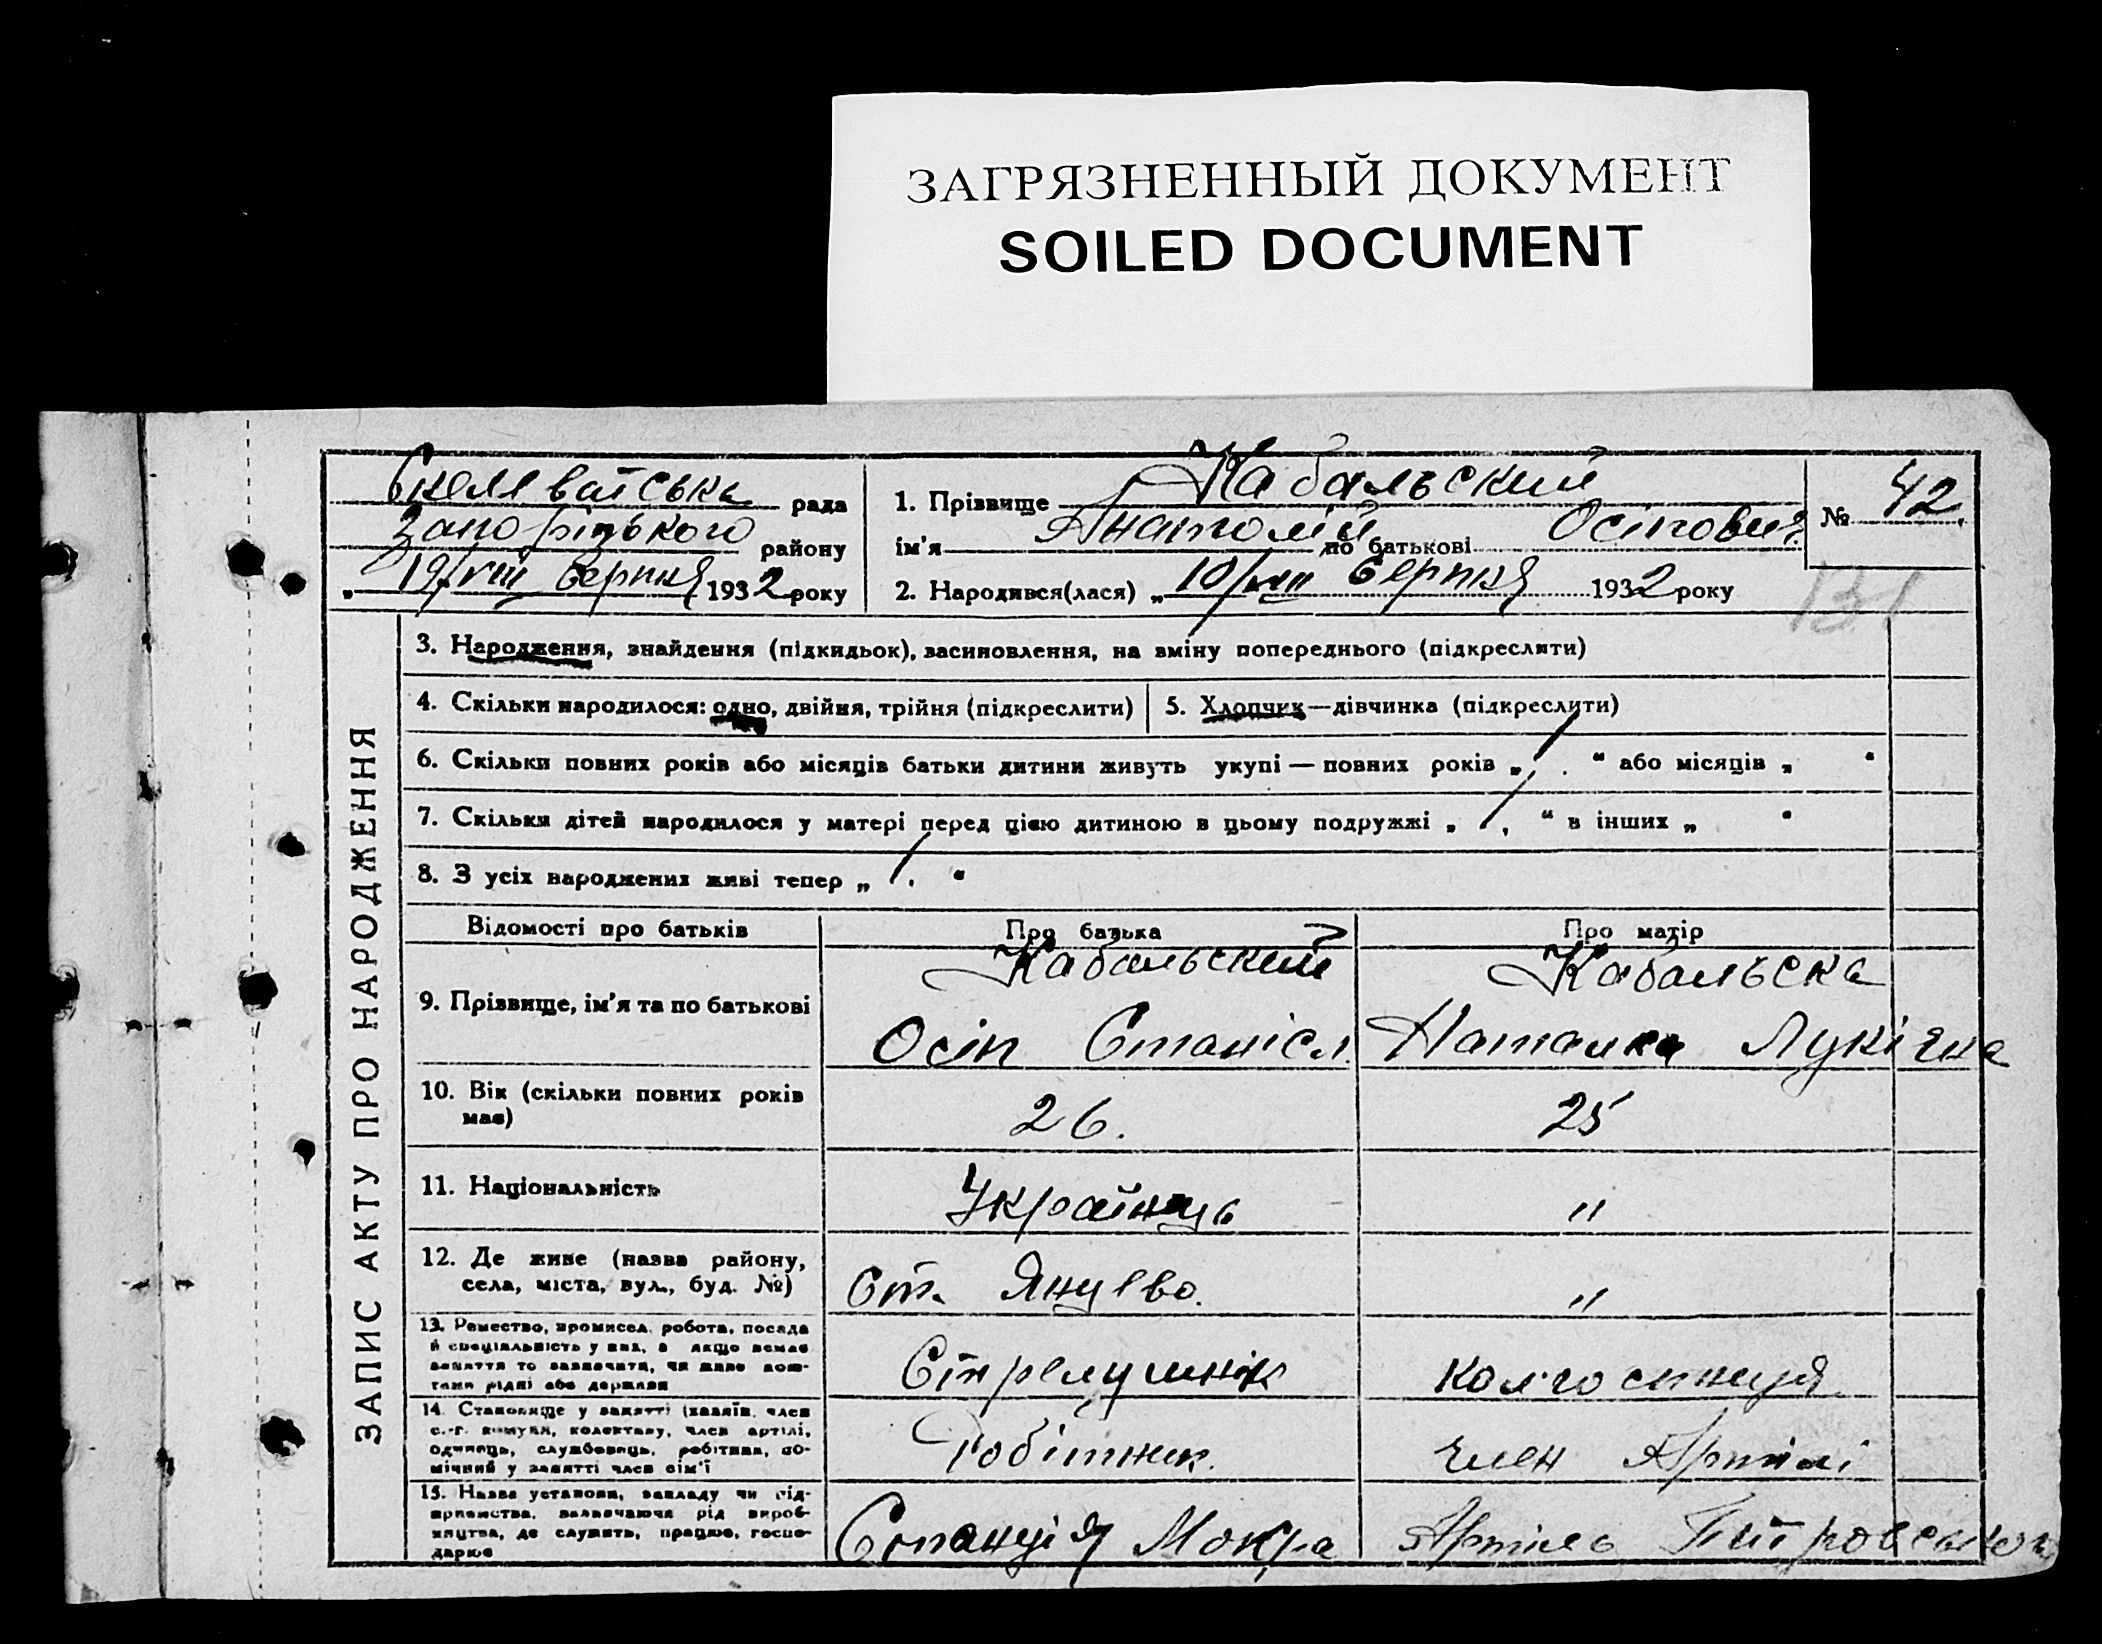 ЗАГРЯЗНЕННЫЙ ДОКУМЕНТ
SOILED DOCUMENT
Скелеватська рада
Запорізького району
„ 19/VIII Серпня 1932 року
1. Прізвище Кабальский
ім’я Анатолій по батькові Осіпович
№ 42.
2. Народився(лася) „ 10/VIII Серпня 1932 року
131
ЗАПИС АКТУ ПРО НАРОДЖЕННЯ
3. Народження, знайдення (підкидьок), засиновлення, на вміну попереднього (підкреслити)
4. Скільки народилося: одно, двійня, трійня (підкреслити)
5. Хлопчик—дівчинка (підкреслити)
6. Скільки повних років або місяців батьки дитини живуть укупі — повних років „ 1. “ або місяців „ “
7. Скільки дітей народилося у матері перед цією дитиною в цьому подружжі „ 1. “ в інших „ “
8. З усіх народжених живі тепер „ 1. “
Відомості про батьків
Про батька
Про матір
9. Прізвище, ім’я та по батькові
Кабальский
Осіп Станісл.
Кабальска
Наталка Лукієна
10. Вік (скільки повних років
має)
26.
25
11. Національність
Українець
"
12. Де живе (назва району,
села, міста, вул., буд. №)
Ст. Янцево.
"
13. Ремество, промисел, робота, посада
й спеціальність у них, а якщо немає
заняття то зазначити, чи живе кош-
тами рідні або держави
Стрелушнік
Колгоспниця
14. Становище у занятті (хазяїн, член
с.-г. комуни, колективу, член артілі,
одинець, службовець, робітник, по-
мічний у занятті член сім’ї
Робітник.
Член Артілі
15. Назва установи, закладу чи під-
приємства, зазначаючи рід вироб-
ництва, де служить, працює, госпо-
дарює
Станція Мокра
Артіль